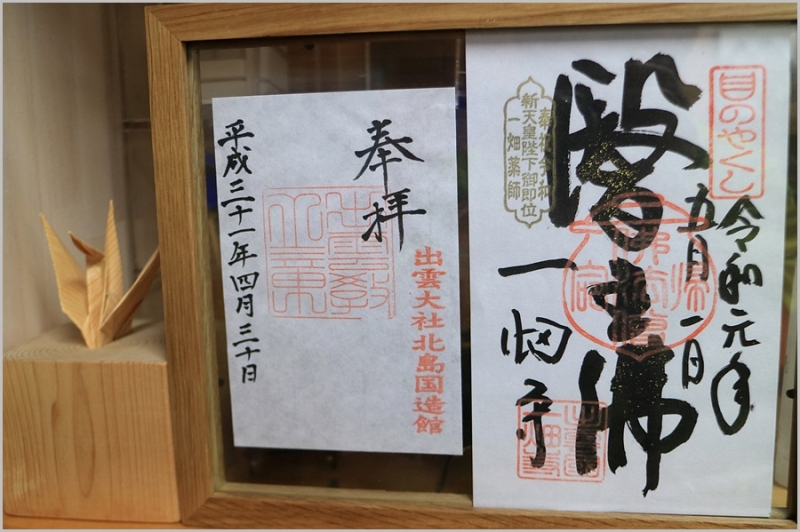 奉拝
出雲大社北島国造館
平成三十一年四月三十日
目のやくし
令和元年
五月一日
醫王佛
奉祝令和
新天皇陛下御即位
一畑薬師
一畑寺